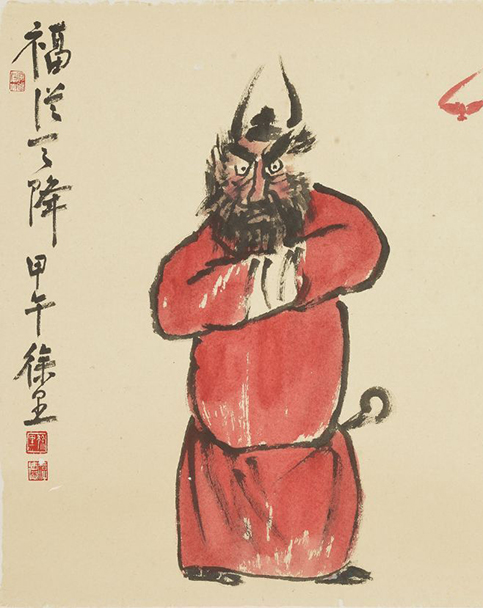 福從天降 甲午 徐